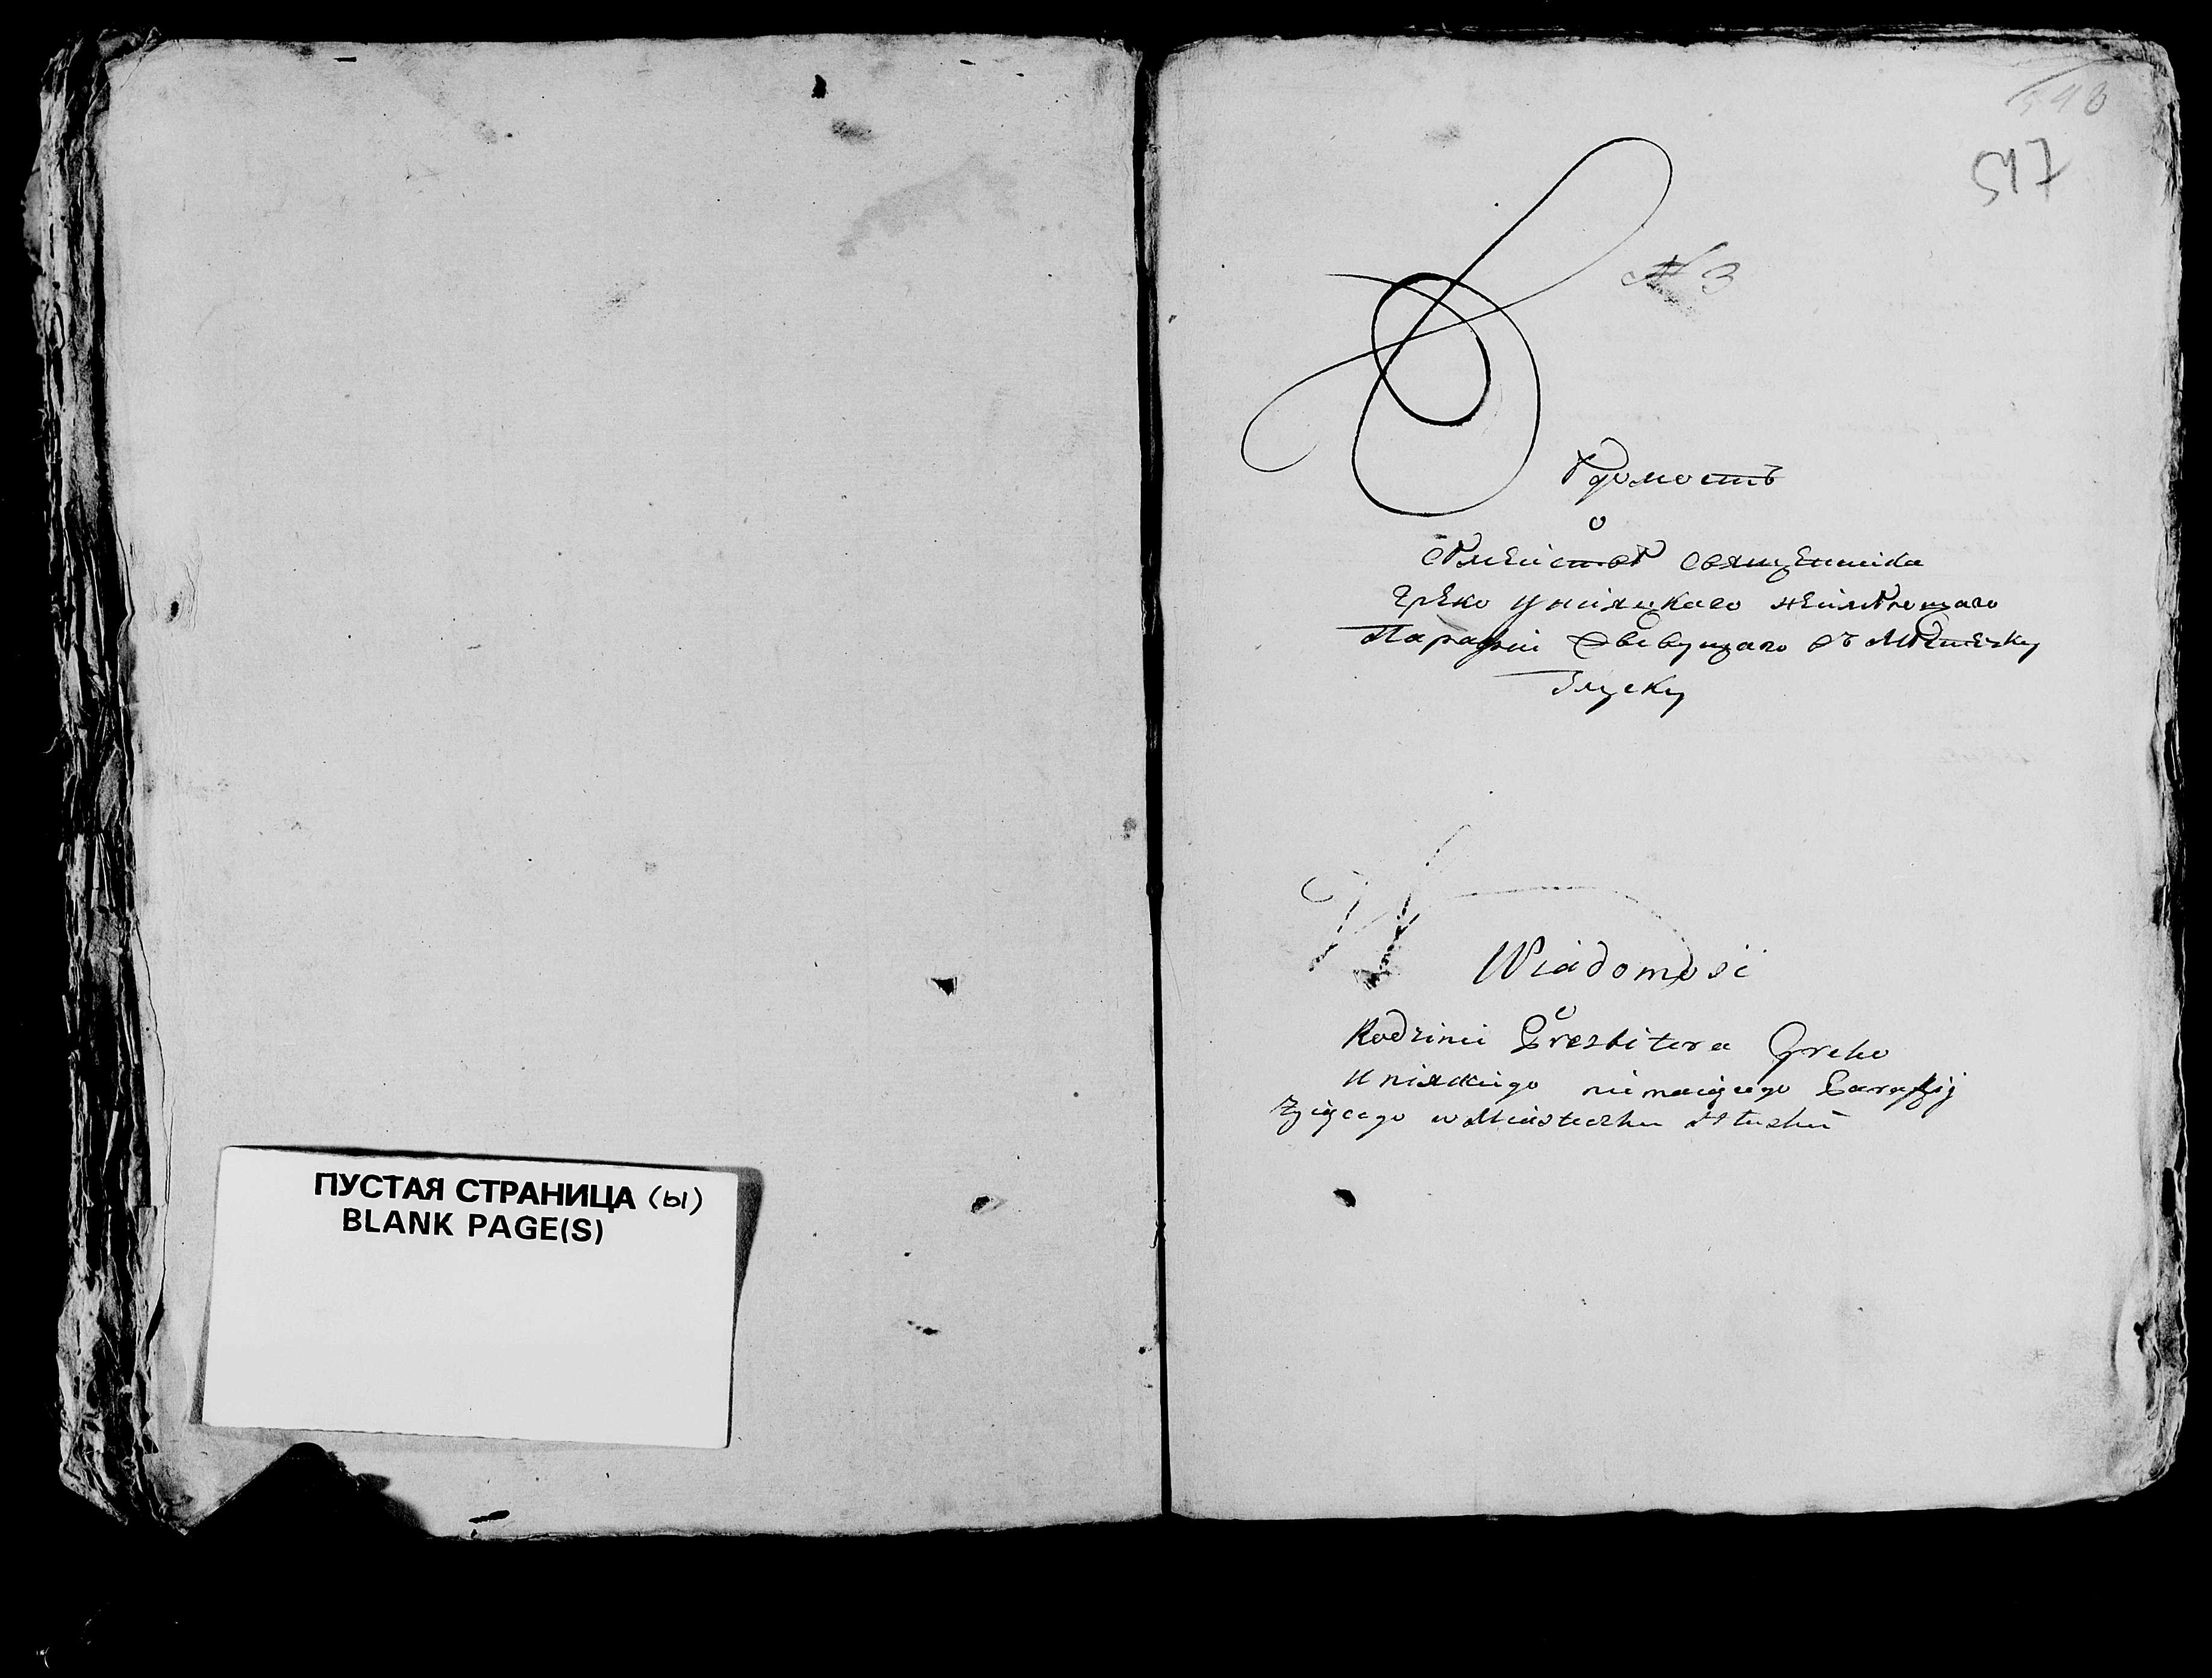 ПУСТАЯ СТРАНИЦА (ы)
BLANK PAGE(S)
547
№ 3
Вѣдомость
о
сѣмействѣ священника
греко унияцкаго неимѣющаго
Парафіи живущаго въ Мѣстечку
Глуску
Wiadomosć
o
Rodzinie Prezbitera Greko
Uniackiego niemaiącego Parafij
Zyiącego w Miasteczku Hłusku